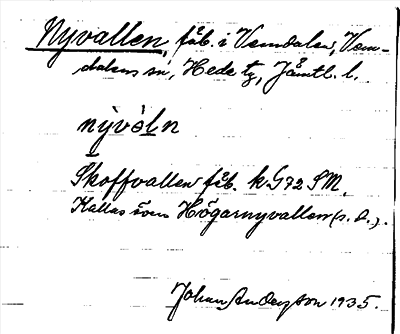 Nyvallen, fäb. i Vemdalen, Vem-
dalens sn, Hede tg, Jämtl. l.
nỳvól̥n
Skoffvallen fäb. k. G72 SM.
Kallas som Högarnyvallen (s. d.).
Johan Anderson 1935.